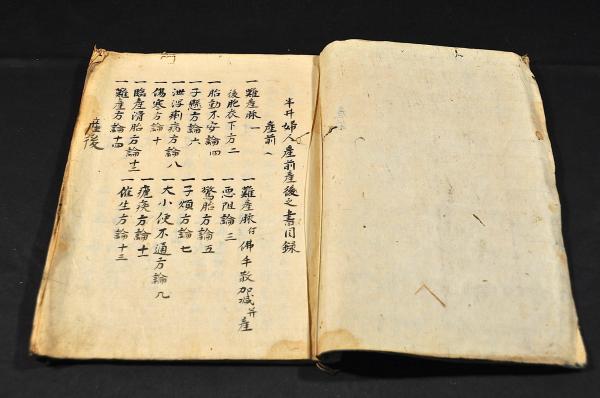 半井婦人産前産後之書目録
産前
一難産脈一 一難産脈付佛手散加減并産
後胞衣下方二 一悪阻論三
一胎動不安論四 一驚胎方論五
一子懸方論六 一子煩方論七
一泄瀉痢病方論八 一大小便不通方論九
一傷寒方論十 一瘧疾方論十一
一臨産滑胎方論十二 一催生方論十三
一難産方論十四
産後